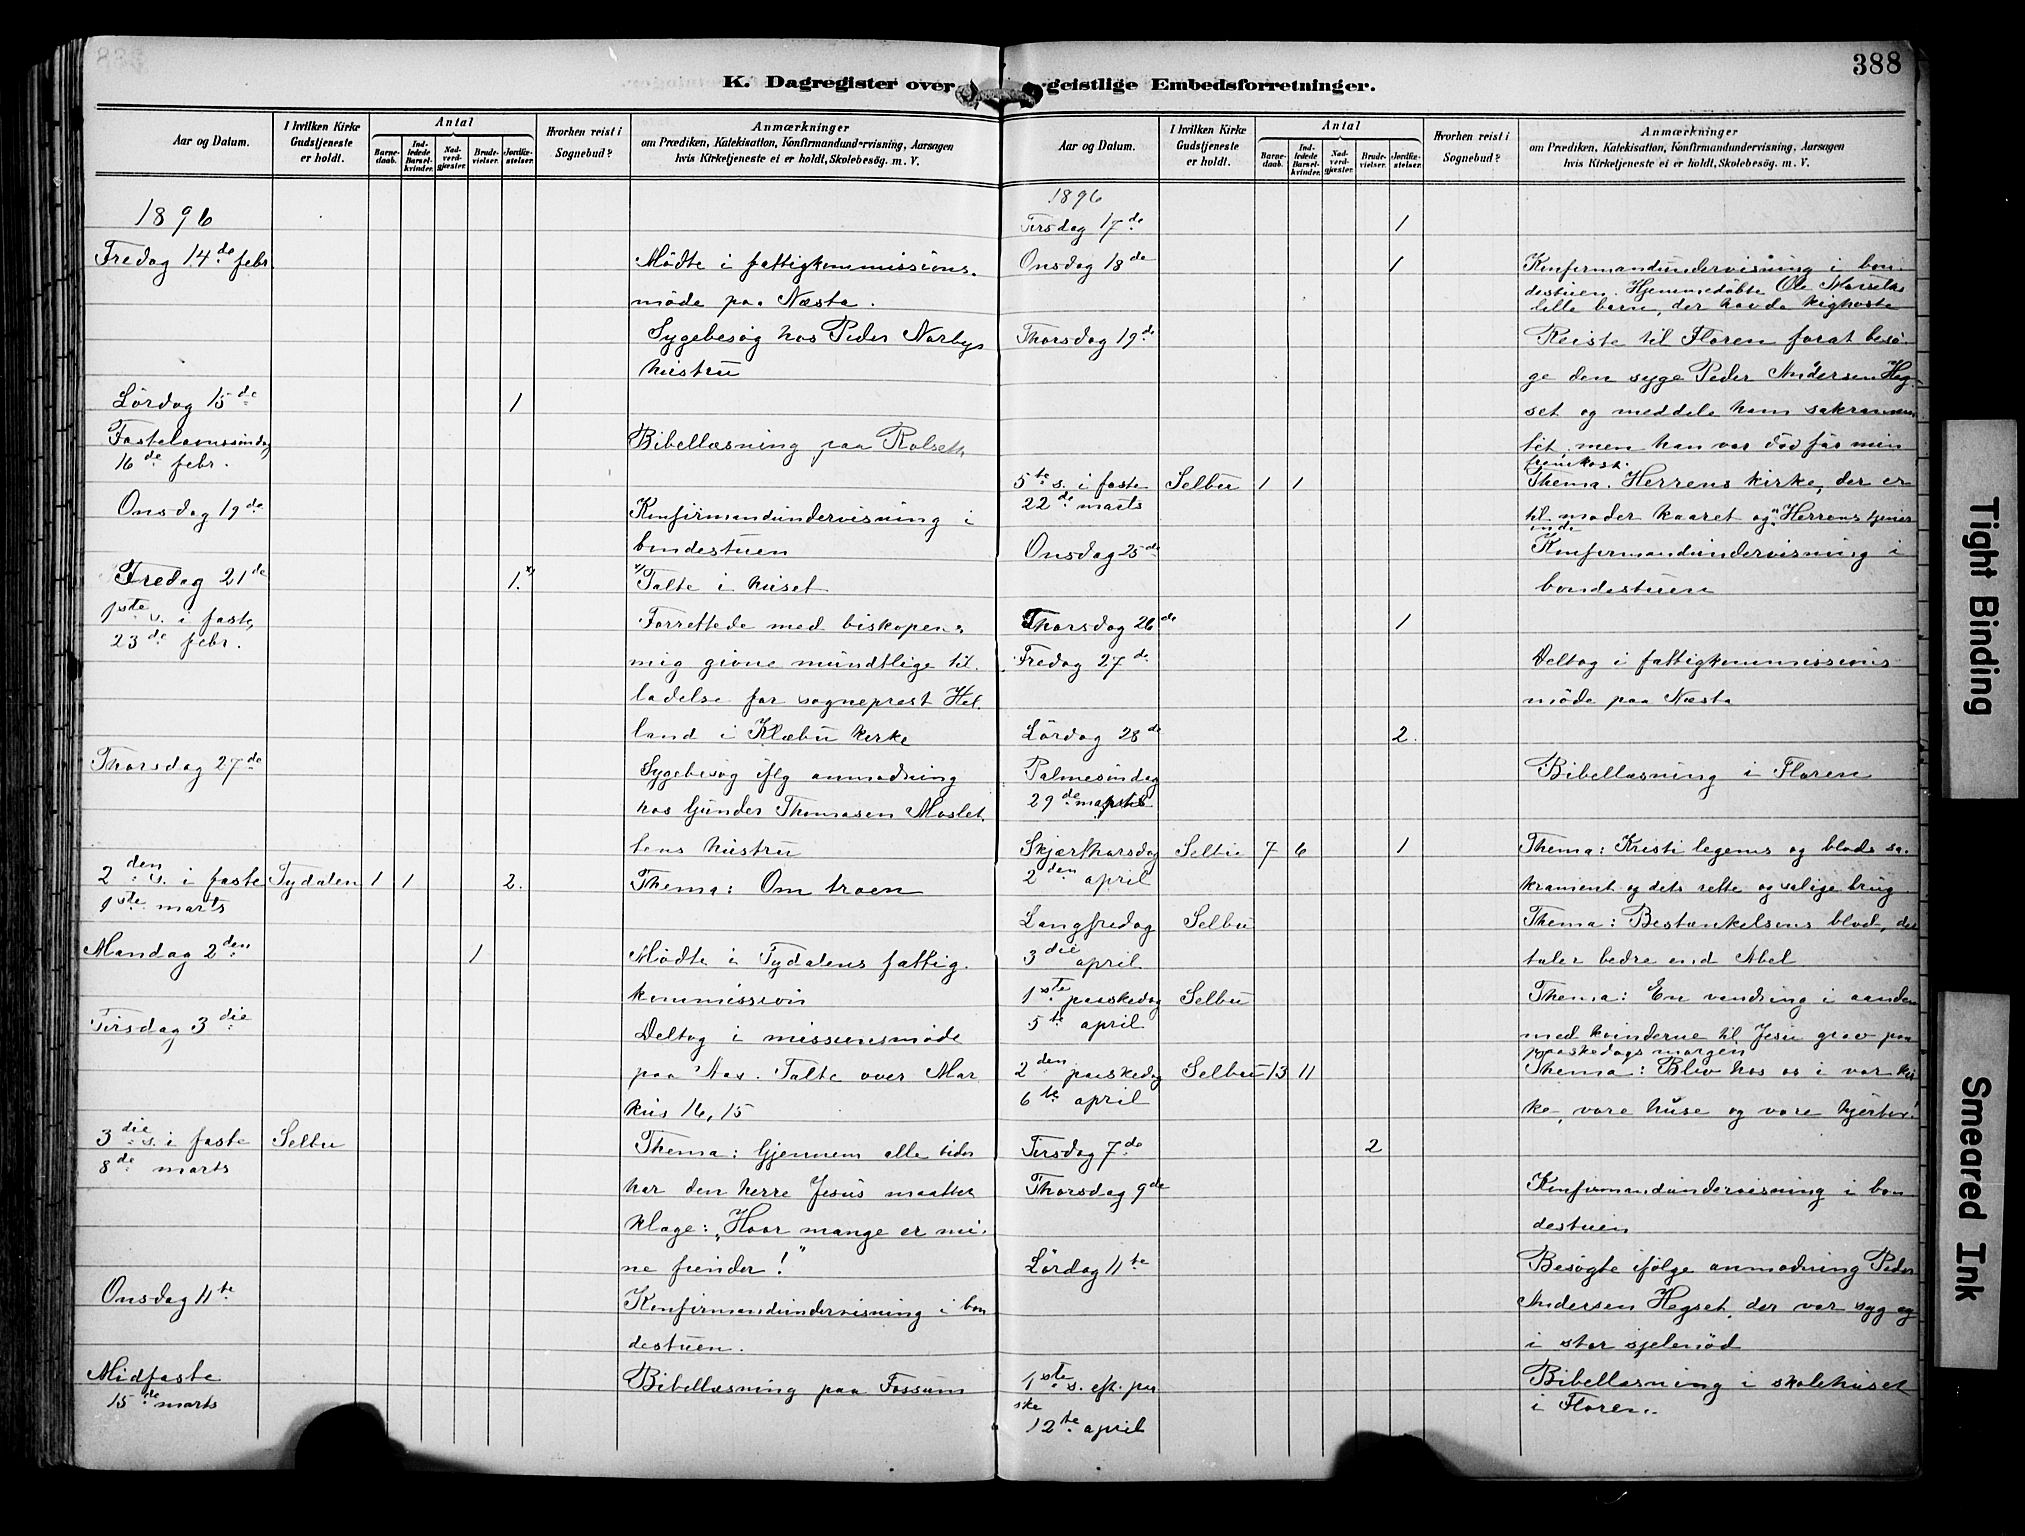 388
K. Dagregister over geistlige Embedsforretninger.
Aar og Datum.
I hvilken Kirke Gudstjeneste er holdt.
Antal
Barne-daab.
Ind-ledede Barsel-kvinder.
Nad-verd-gjæster.
Brude-vielser.
Jordfæ-stelser.
Hvorhen reist i Sognebud?
Anmærkninger
om Prædiken, Katekisation, Konfirmandundervisning, Aarsagen
hvis Kirketjeneste ei er holdt, Skolebesøg. m. V.
1896
Fredag 14de febr. Mødte i fattigkommissions-
møde paa Næsta.
Sygebesøg hos Peder Norbys
hustru
Lördag 15de 1
Fastelavnssøndag Bibellæsning paa Rolseth
16de febr.
Onsdag 19de Konfirmandundervisning i
bondestuen
Fredag 21de 1. x) x) Talte i huset
1ste s. i faste, Forrettede med biskopens
23de febr.
mig givne mundtlige til-
ladelse for sogneprest Hel-
land i Klæbu kirke
Thorsdag 27de Sygebesøg iflg anmodning
hos Gunder Thomasen Moslet-
tens hustru
2den s. i faste Tydalen 1 1 2. Thema: Om troen
1ste marts
Mandag 2den 1 Mødte i Tydalens fattig-
kommission
Tirsdag 3die Deltog i missionsmøde
paa Aas. Talte over Mar
kus 16, 15
3die s. i faste Selbu Thema: Gjennem alle tider
8de marts
har den herre Jesus maattet
klage: „Hvor mange er mi-
ne fiender!"
Onsdag 11te Konfirmandundervisning i bon
destuen.
Midfaste Bibellæsning paa Fossum
15de marts
Aar og Datum.
I hvilken Kirke Gudstjeneste er holdt.
Antal
Barne-daab.
Ind-ledede Barsel-kvinder.
Nad-verd-gjæster.
Brude-vielser.
Jordfæ-stelser.
Hvorhen reist i Sognebud?
Anmærkninger
om Prædiken, Katekisation, Konfirmandundervisning, Aarsagen
hvis Kirketjeneste ei er holdt, Skolebesøg. m. V.
1896
Tirsdag 17de 1
Onsdag 18de 1 Konfirmandundervisning i bon-
destuen. Hjemmedøbte Ole
lille barn, der havde kighoste
Thorsdag 19de Reiste til Floren forat besø-
ge den syge Peder Andersen Heg-
set og meddele ham sakramen
tet, men han var død før min
fremkost.
5te s. i faste Selbu 1 1 Thema: Herrens kirke, der er
22de marts
til moder kaaret og „Herrens tjener
inde
Onsdag 25de Konfirmandundervisning i
bondestuen
Thorsdag 26de 1
Fredag 27de Deltog i fattigkommissions
møde paa Næsta
Lördag 28de 2.
Palmesøndag Bibellæsning i Floren
29de marts
Skjærthorsdag Selbu 7 6 1 Thema: Kristi legems og blods sa-
2den april
krament og dets rette og salige brug
Langfredag Selbu Thema: Bestænkelsens blod, der
3die april
taler bedre end Abel
1ste paaskedag Selbu Thema: En vandring i aanden
5te april
med kvinderne til Jesu grav paa
paaskedags morgen
2den paaskedag Selbu 13 11 Thema: Bliv hos os i vor kir
6te april
ke, vore huse og vore hjerter!
Tirsdag 7de 2
Thorsdag 9de Konfirmandundervisning i bon
destuen
Lördag 11te Besøgte ifølge anmodning Peder
Andersen Hegset, der var syg og
i stor sjelenød
1ste s. eft. paa Bibellæsning i skolehuset
ske
i Floren.
12te april
Tight Binding
Smeared Ink